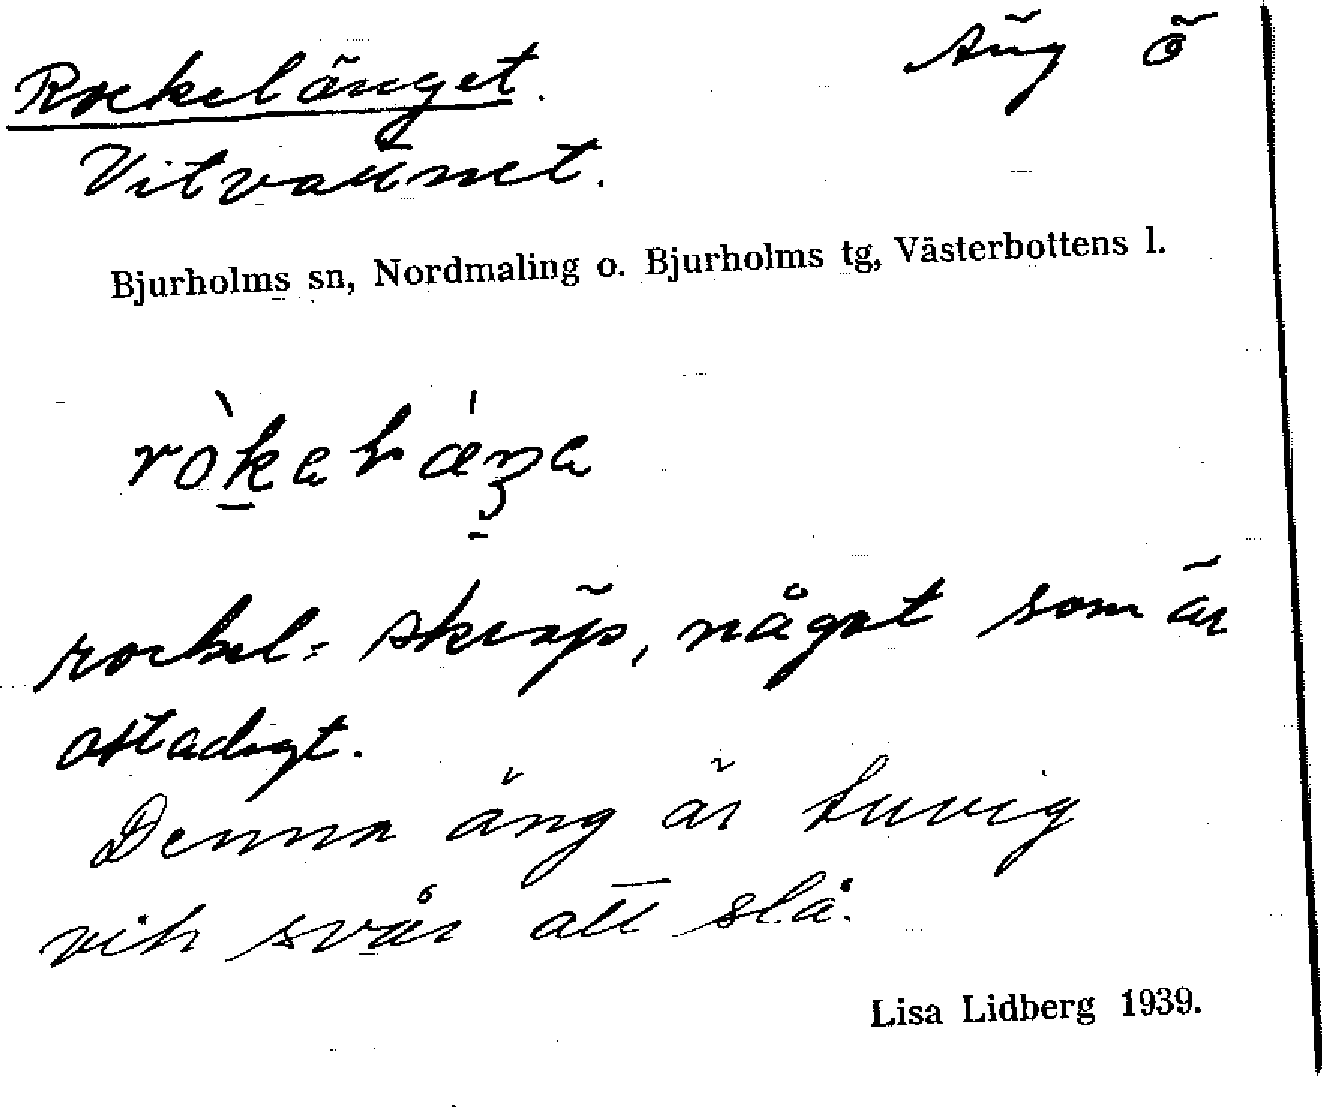 Rockelänget.
Äng Ö
Vitvattnet.
Bjurholms sn, Nordmaling o. Bjurholms tg, Västerbottens l.
rockel = skräp, något som är
ostadigt.
Denna äng är tuvig
och svår att slå.
Lisa Lidberg 1939.